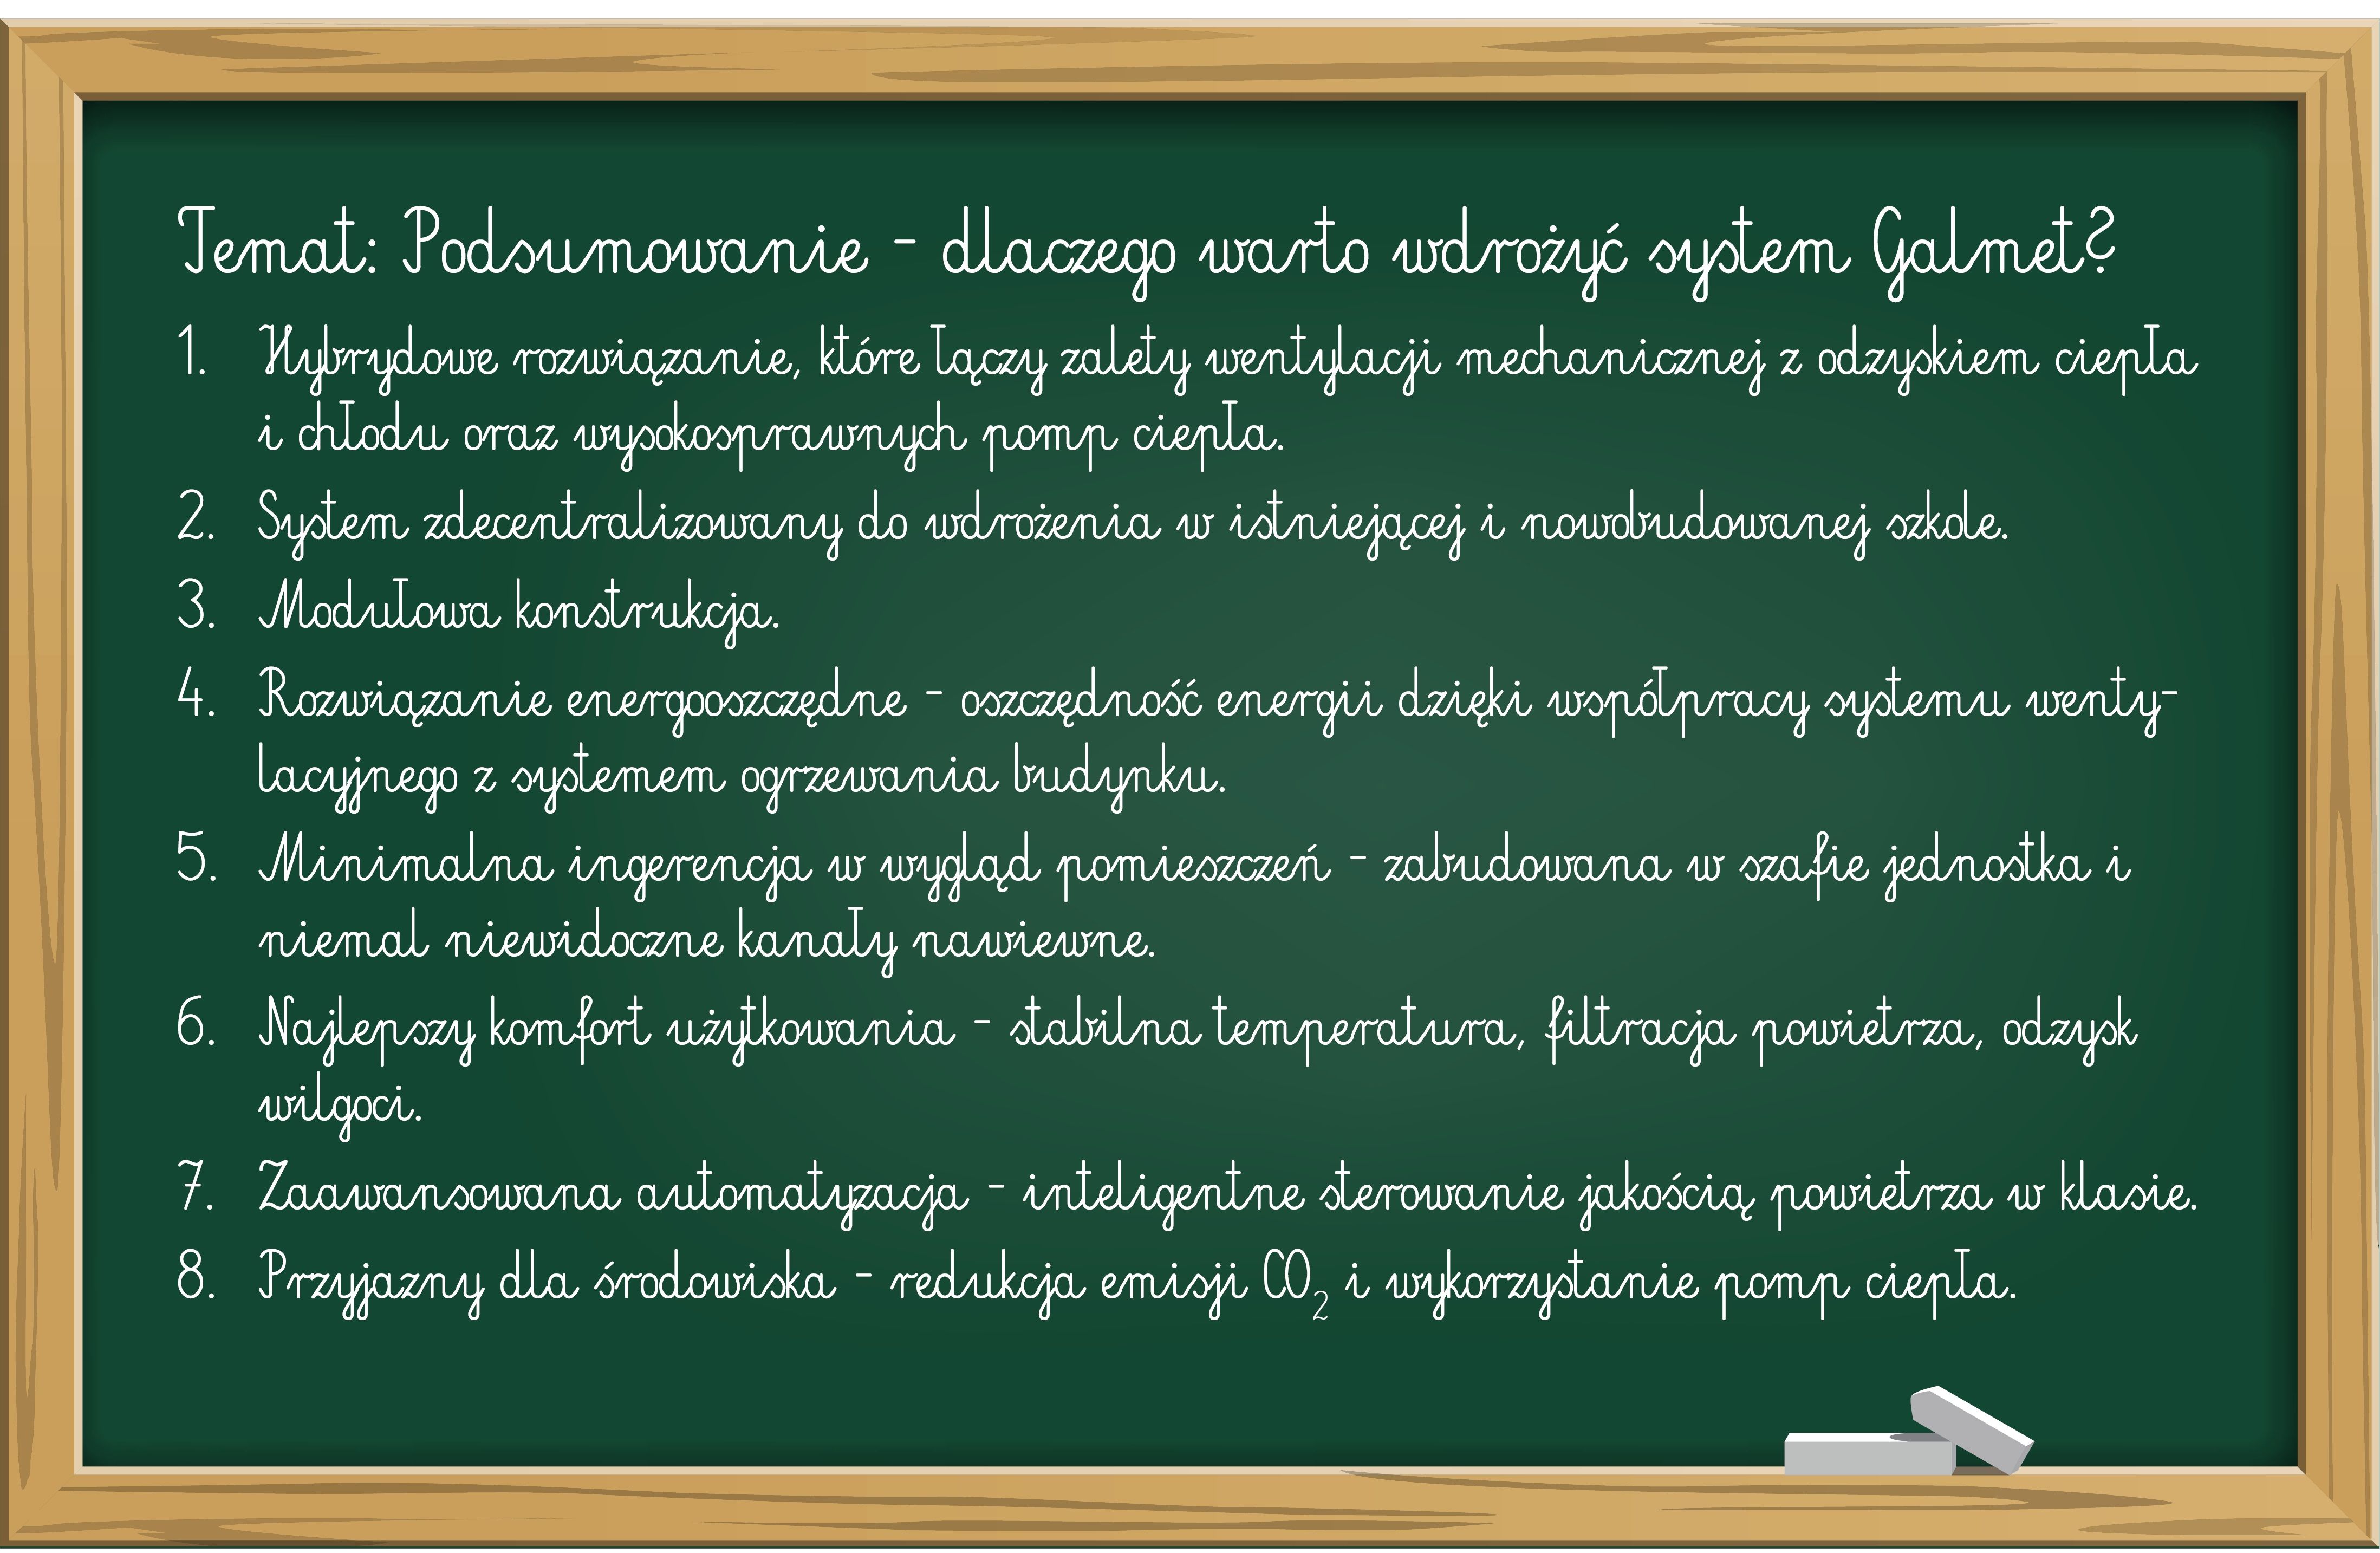 Temat: Podsumowanie - dlaczego warto wdrożyć system Galmet?
1. Hybrydowe rozwiązanie, które łączy zalety wentylacji mechanicznej z odzyskiem ciepła
i chłodu oraz wysokosprawnych pomp ciepła.
2. System zdecentralizowany do wdrożenia w istniejącej i nowobudowanej szkole.
3. Modułowa konstrukcja.
4. Rozwiązanie energooszczędne - oszczędność energii dzięki współpracy systemu wenty-
lacyjnego z systemem ogrzewania budynku.
5. Minimalna ingerencja w wygląd pomieszczeń - zabudowana w szafie jednostka i
niemal niewidoczne kanały nawiewne.
6. Najlepszy komfort użytkowania - stabilna temperatura, filtracja powietrza, odzysk
wilgoci.
7. Zaawansowana automatyzacja - inteligentne sterowanie jakością powietrza w klasie.
8. Przyjazny dla środowiska - redukcja emisji CO₂ i wykorzystanie pomp ciepła.